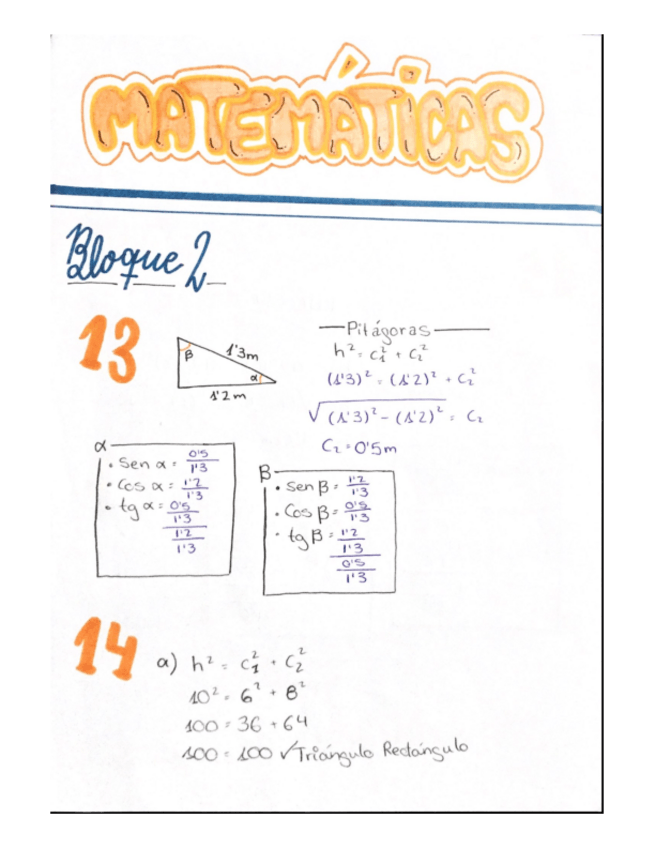 MATEMÁTICAS
Bloque 2
13
β
1'3m
α
1'2m
Pitágoras
h² = c₁² + c₂²
(1'3)² = (1'2)² + c₂²
√(1'3)² - (1'2)² = c₂
c₂ = 0'5m
α
• Sen α = 0'5/1'3
• Cos α = 1'2/1'3
• tg α = 0'5/1'3 / 1'2/1'3
β
• Sen β = 1'2/1'3
• Cos β = 0'5/1'3
• tg β = 1'2/1'3 / 0'5/1'3
14
a) h² = c₁² + c₂²
10² = 6² + 8²
100 = 36 + 64
100 = 100 ✓ Triángulo Rectángulo